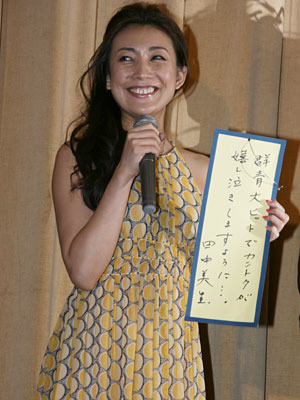 群青大ヒットでカントクが
嬉し泣きしますように…。
田中美里